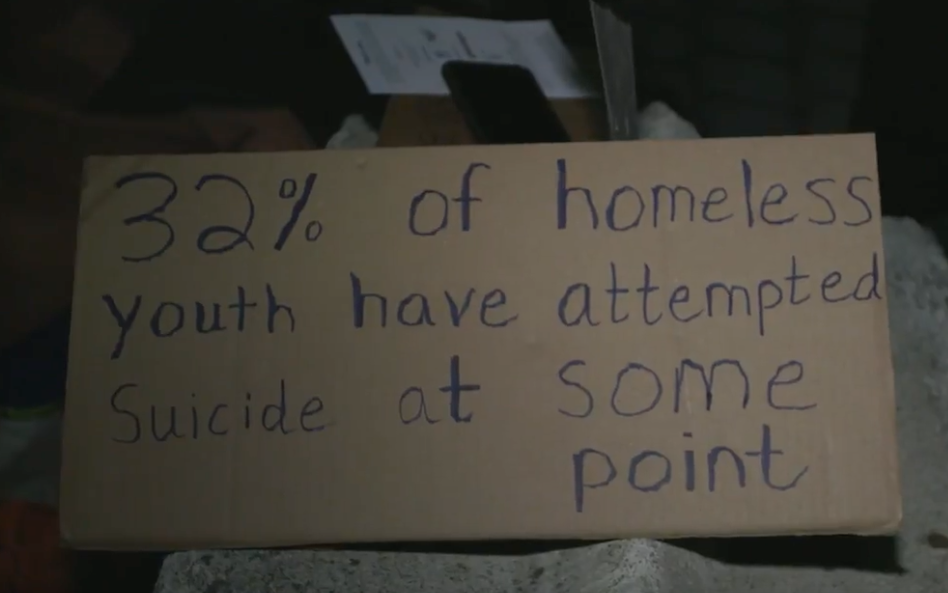 32% of homeless
youth have attempted
Suicide at some
point